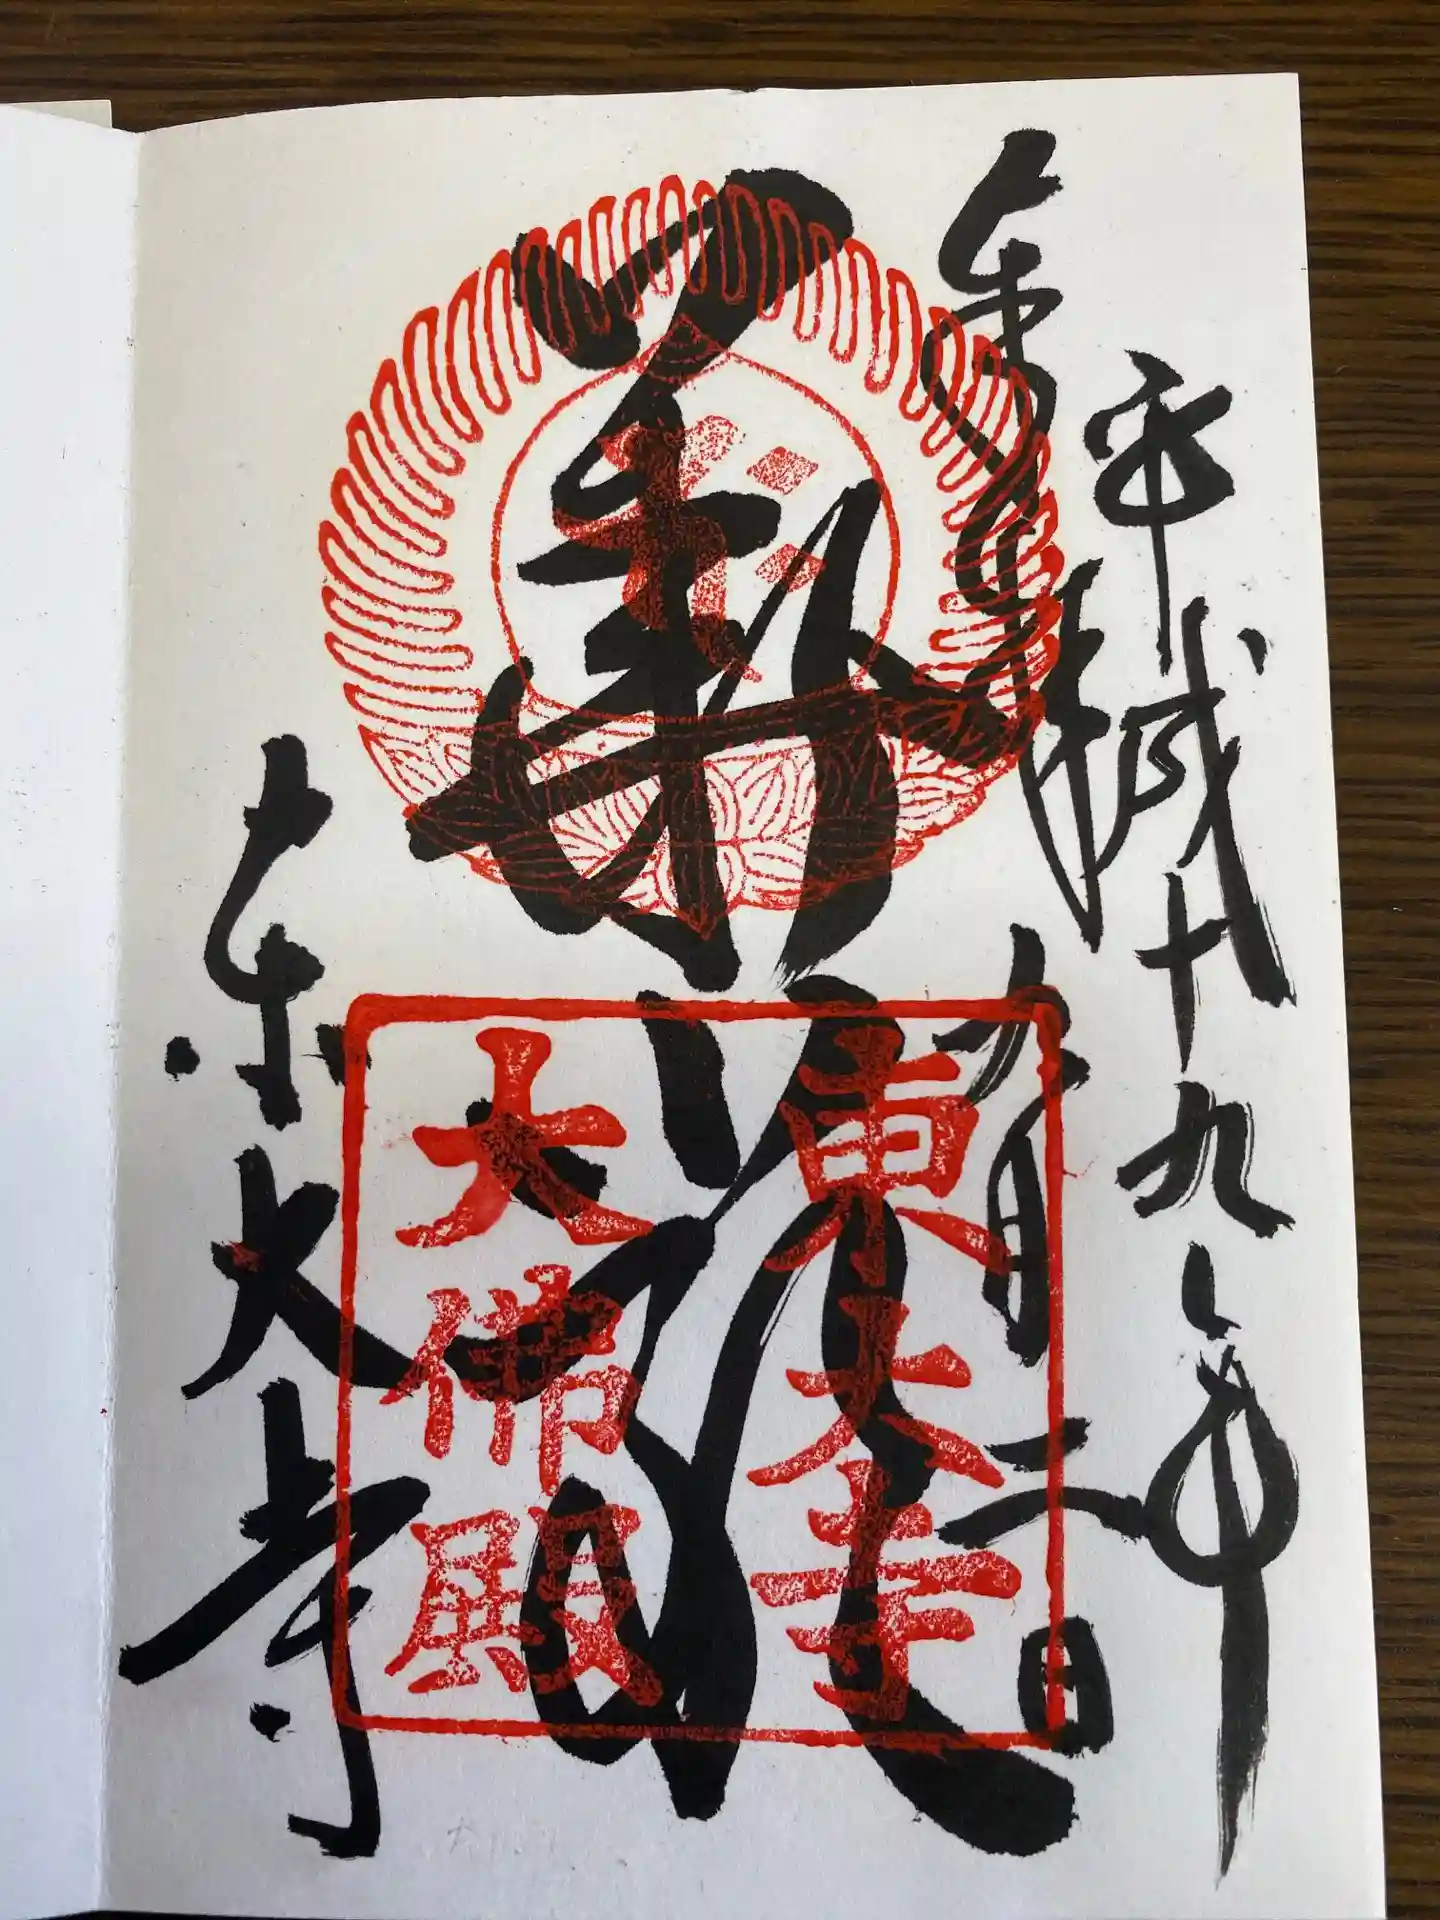 奉拝
平成十九年
九月二日
華厳
東大寺
東大寺
大佛殿